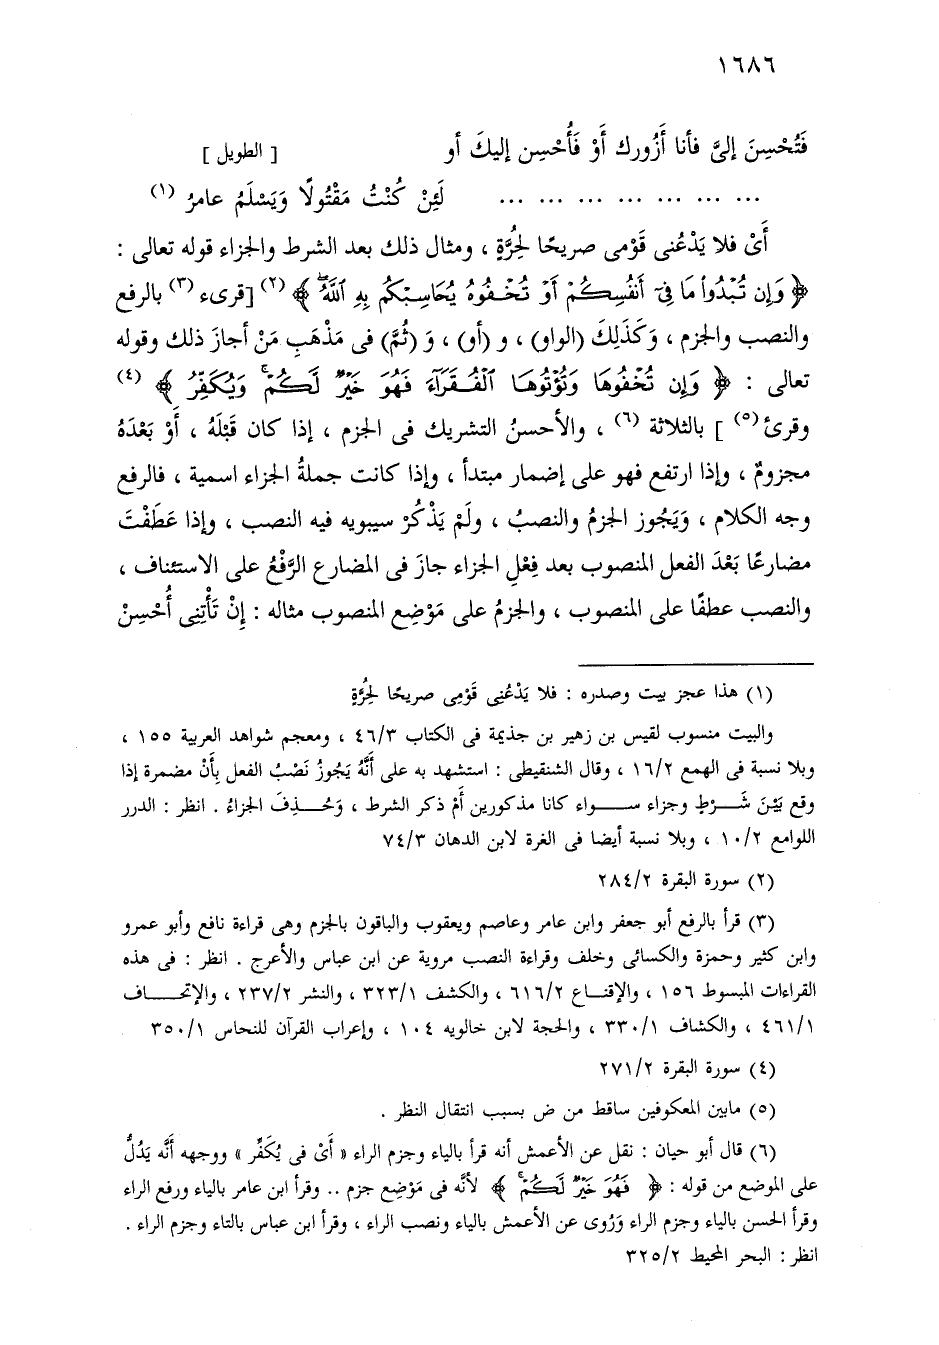 ١٦٨٦
فَتُحْسِنَ إلىَّ فأنا أَزُورك أَوْ فَأُحْسِن إليكَ أو [ الطويل ]
... ... ... ... ... ... ... لَئِنْ كُنْتُ مَقْتُولًا وَيَسْلَمُ عامرُ (١)
أَىْ فلا يَدْعُنى قَوْمى صريحًا لِحُرَّةٍ ، ومثال ذلك بعد الشرط والجزاء قوله تعالى :
﴿ وَإِن تُبْدُوا۟ مَا فِىٓ أَنفُسِكُمْ أَوْ تُخْفُوهُ يُحَاسِبْكُم بِهِ ٱللَّهُ ﴾ (٢) [قرىء (٣) بالرفع
والنصب والجزم ، وَكَذَلِكَ (الواو) ، و (أو) ، وَ (ثُمَّ) فى مَذْهَبِ مَنْ أجازَ ذلك وقوله
تعالى : ﴿ وَإِن تُخْفُوهَا وَتُؤْتُوهَا ٱلْفُقَرَآءَ فَهُوَ خَيْرٌ لَّكُمْ ۚ وَيُكَفِّرُ ﴾ (٤)
وقرئ (٥) ] بالثلاثة (٦) ، والأحسنُ التشريك فى الجزم ، إذا كان قَبْلَهُ ، أَوْ بَعْدَهُ
مجزومٌ ، وإذا ارتفع فهو على إضمار مبتدأ ، وإذا كانت جملةُ الجزاء اسمية ، فالرفع
وجه الكلام ، وَيَجُوز الجزمُ والنصبُ ، ولَمْ يَذْكُرْ سيبويه فيه النصب ، وإذا عَطَفْتَ
مضارعًا بَعْدَ الفعل المنصوب بعد فِعْلِ الجزاء جازَ فى المضارع الرَّفْعُ على الاستئناف ،
والنصب عطفًا على المنصوب ، والجزمُ على مَوْضِع المنصوب مثاله : إِنْ تَأْتِنِى أُحْسِنْ
(١) هذا عجز بيت وصدره : فلا يَدْعُنِى قَوْمِى صريحًا لِحُرَّةٍ
والبيت منسوب لقيس بن زهير بن جذيمة فى الكتاب ٤٦/٣ ، ومعجم شواهد العربية ١٥٥ ،
وبلا نسبة فى الهمع ١٦/٢ ، وقال الشنقيطى : استشهد به على أَنَّهُ يَجُوزُ نَصْبُ الفعل بِأَنْ مضمرة إذا
وقع بَيْنَ شَرْطٍ وجزاء سواء كانا مذكورين أَمْ ذكر الشرط ، وَحُذِفَ الجزاءُ . انظر : الدرر
اللوامع ١٠/٢ ، وبلا نسبة أيضا فى الغرة لابن الدهان ٧٤/٣
(٢) سورة البقرة ٢٨٤/٢
(٣) قرأ بالرفع أبو جعفر وابن عامر وعاصم ويعقوب والباقون بالجزم وهى قراءة نافع وأبو عمرو
وابن كثير وحمزة والكسائى وخلف وقراءة النصب مروية عن ابن عباس والأعرج . انظر : فى هذه
القراءات المبسوط ١٥٦ ، والإقناع ٦١٦/٢ ، والكشف ٣٢٣/١ ، والنشر ٢٣٧/٢ ، والإتحاف
٤٦١/١ ، والكشاف ٣٣٠/١ ، والحجة لابن خالويه ١٠٤ ، وإعراب القرآن للنحاس ٣٥٠/١
(٤) سورة البقرة ٢٧١/٢
(٥) مابين المعكوفين ساقط من ض بسبب انتقال النظر .
(٦) قال أبو حيان : نقل عن الأعمش أنه قرأ بالياء وجزم الراء « أَىْ فى يُكَفِّر » ووجهه أَنَّه يَدُلُّ
على الموضع من قوله : ﴿ فَهُوَ خَيْرٌ لَّكُمْ ۚ ﴾ لأنَّه فى مَوْضِع جزم .. وقرأ ابن عامر بالياء ورفع الراء
وقرأ الحسن بالياء وجزم الراء وَرُوى عن الأعمش بالياء ونصب الراء ، وقرأ ابن عباس بالتاء وجزم الراء .
انظر : البحر المحيط ٣٢٥/٢